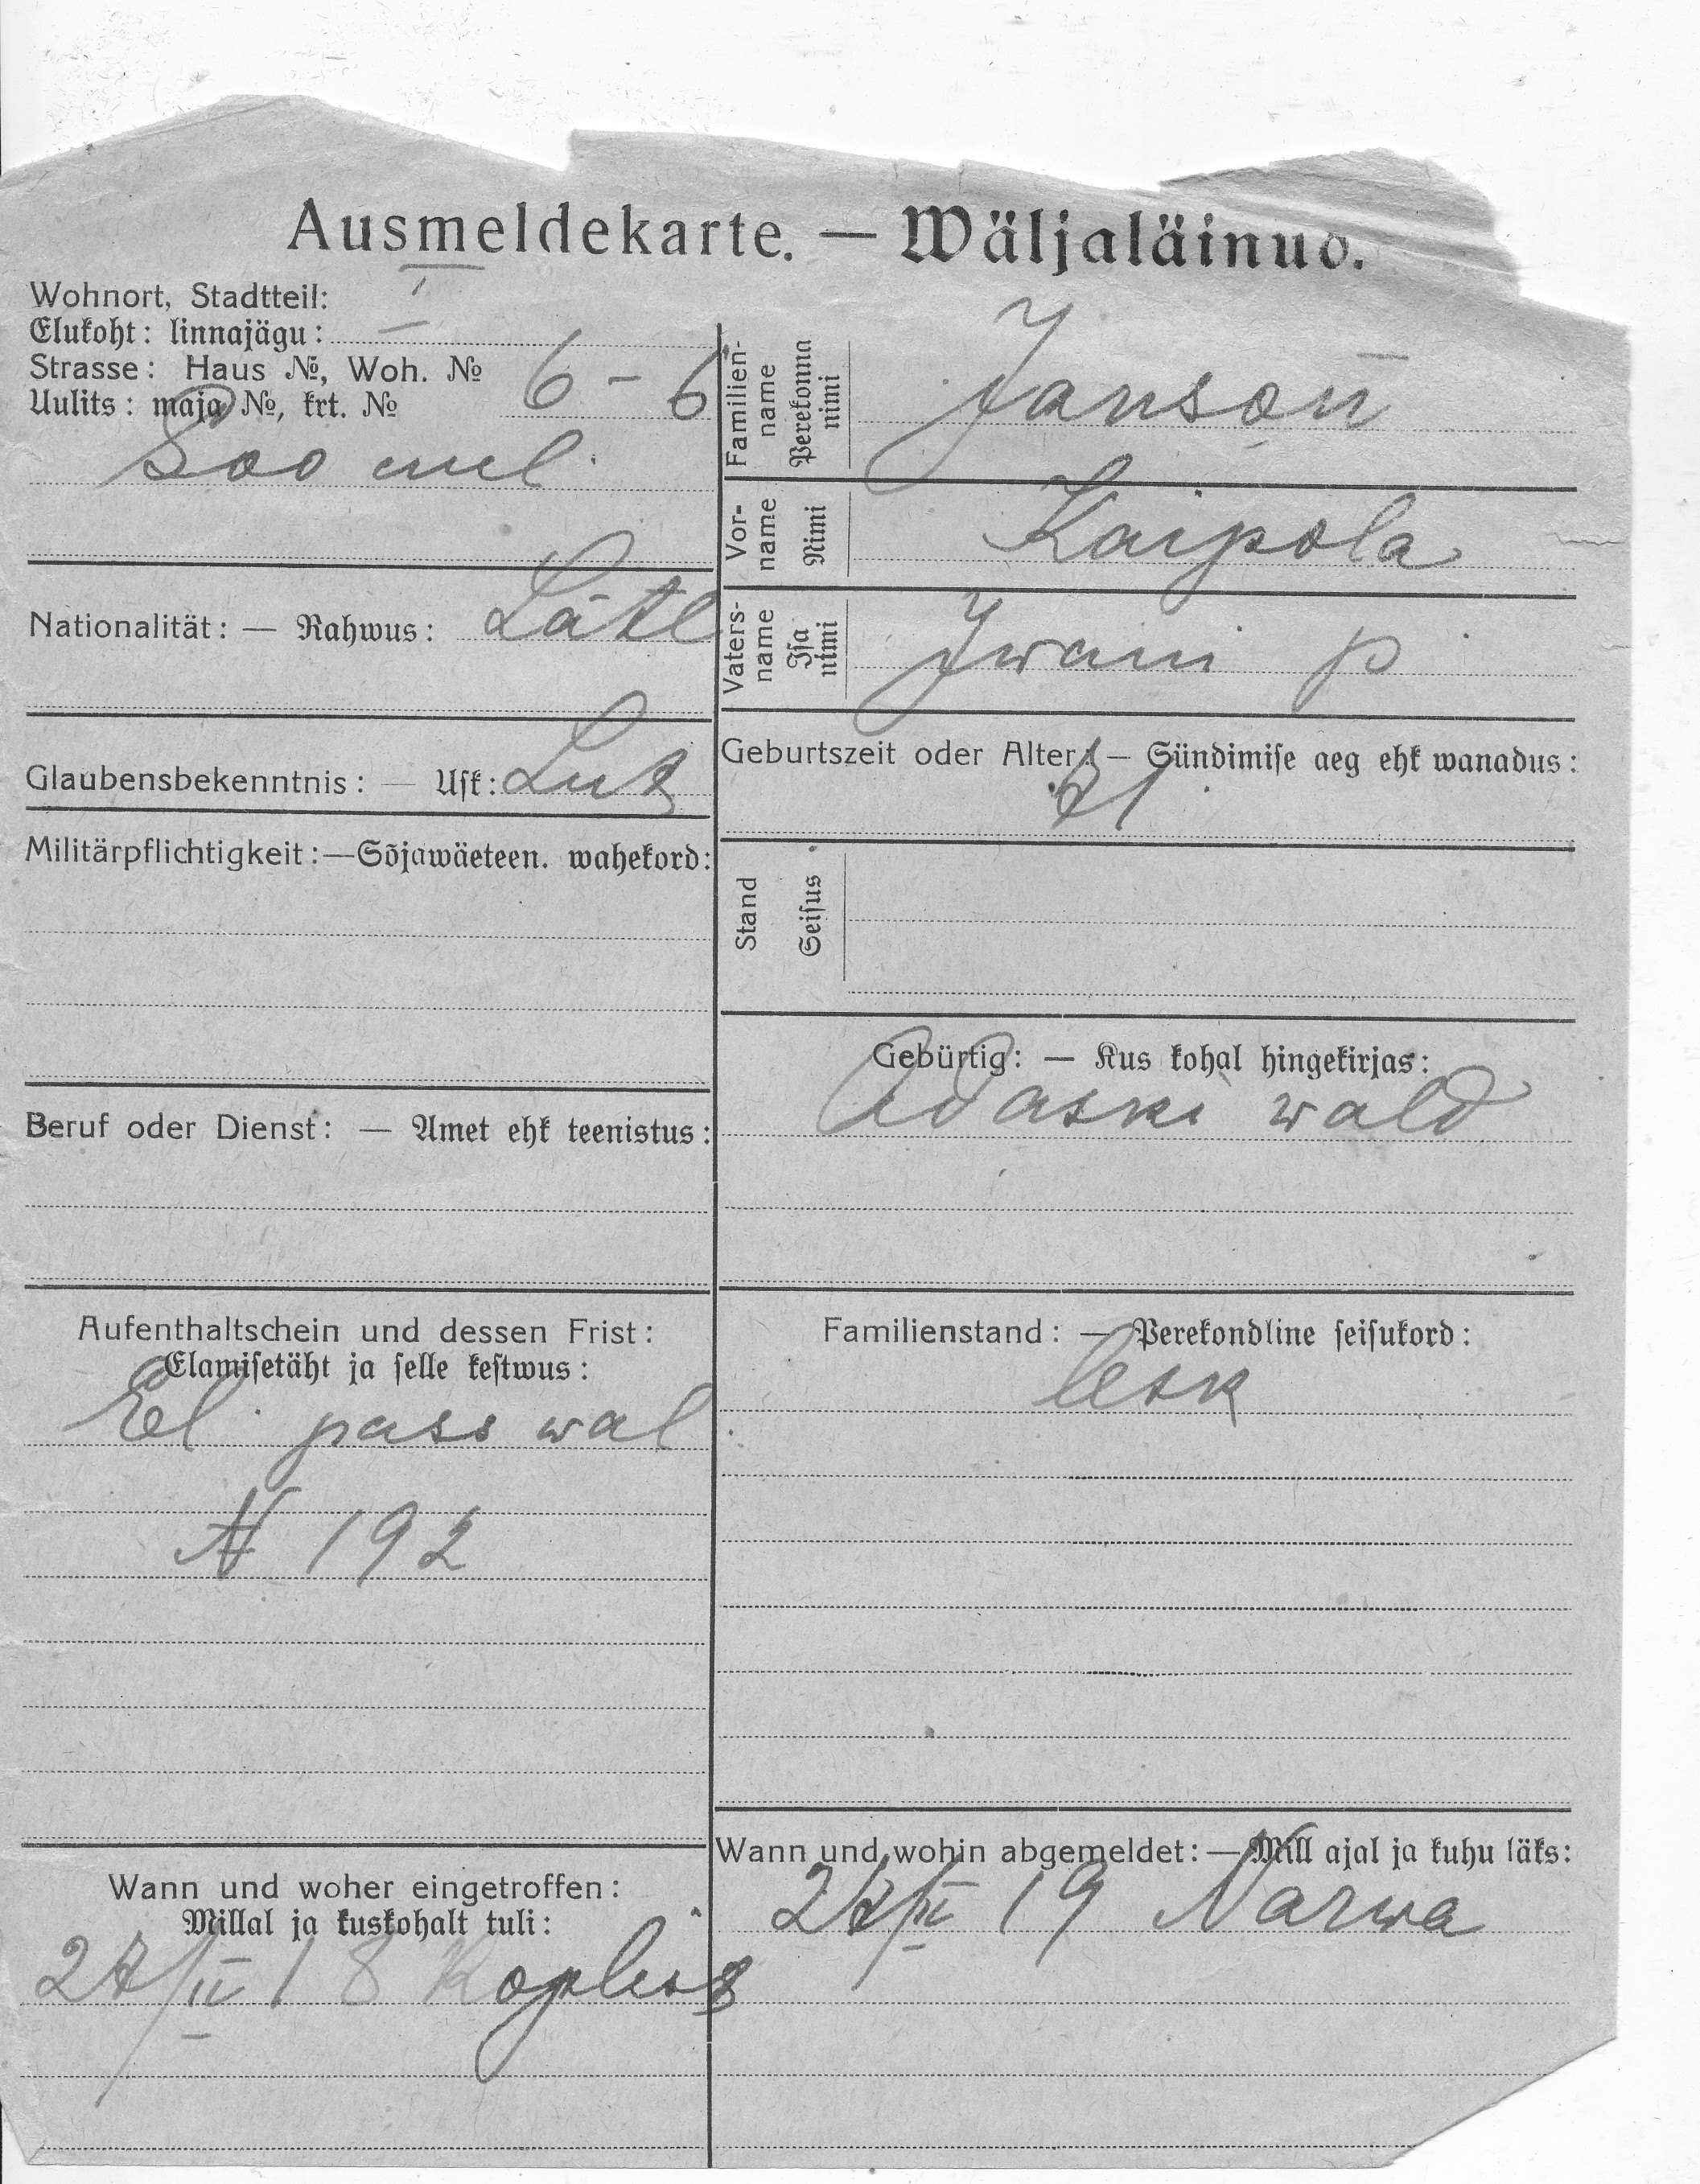 Ausmeldekarte. — Wäljaläinud.
Wohnort, Stadtteil:
Elukoht: linnajägu: I
Strasse: Haus №, Woh. №
Uulits: maja №, krt. № 6 - 6
Soo uul.
Nationalität: — Rahwus: Lätl
Glaubensbekenntnis: — Usk: Lut
Militärpflichtigkeit: — Sõjawäeteen. wahekord:
Beruf oder Dienst: — Amet ehk teenistus:
Aufenthaltschein und dessen Frist:
Elamisetäht ja selle kestwus:
El. pass wal
N 192
Wann und woher eingetroffen:
Millal ja kuskohalt tuli:
27/II 18 Koplist
Familien-name Perekonna nimi Janson
Vor-name Nimi Kaipola
Vaters-name Isa nimi Iwani p
Geburtszeit oder Alter: — Sündimise aeg ehk wanadus:
Stand Seisus
Gebürtig: — Kus kohal hingekirjas:
Adaski wald
Familienstand: — Perekondline seisukord:
lesk
Wann und wohin abgemeldet: — Mill ajal ja kuhu läks:
19 Narwa